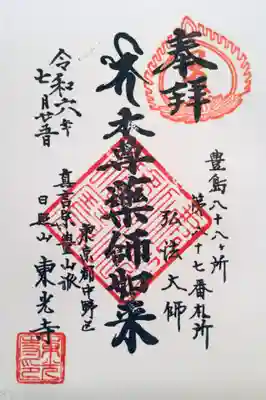 奉拝
豊島八十八ヶ所
第八十七番札所
弘法大師
本尊薬師如来
東京都中野区
真言宗豊山派
日照山 東光寺
令和六年
七月廿五日